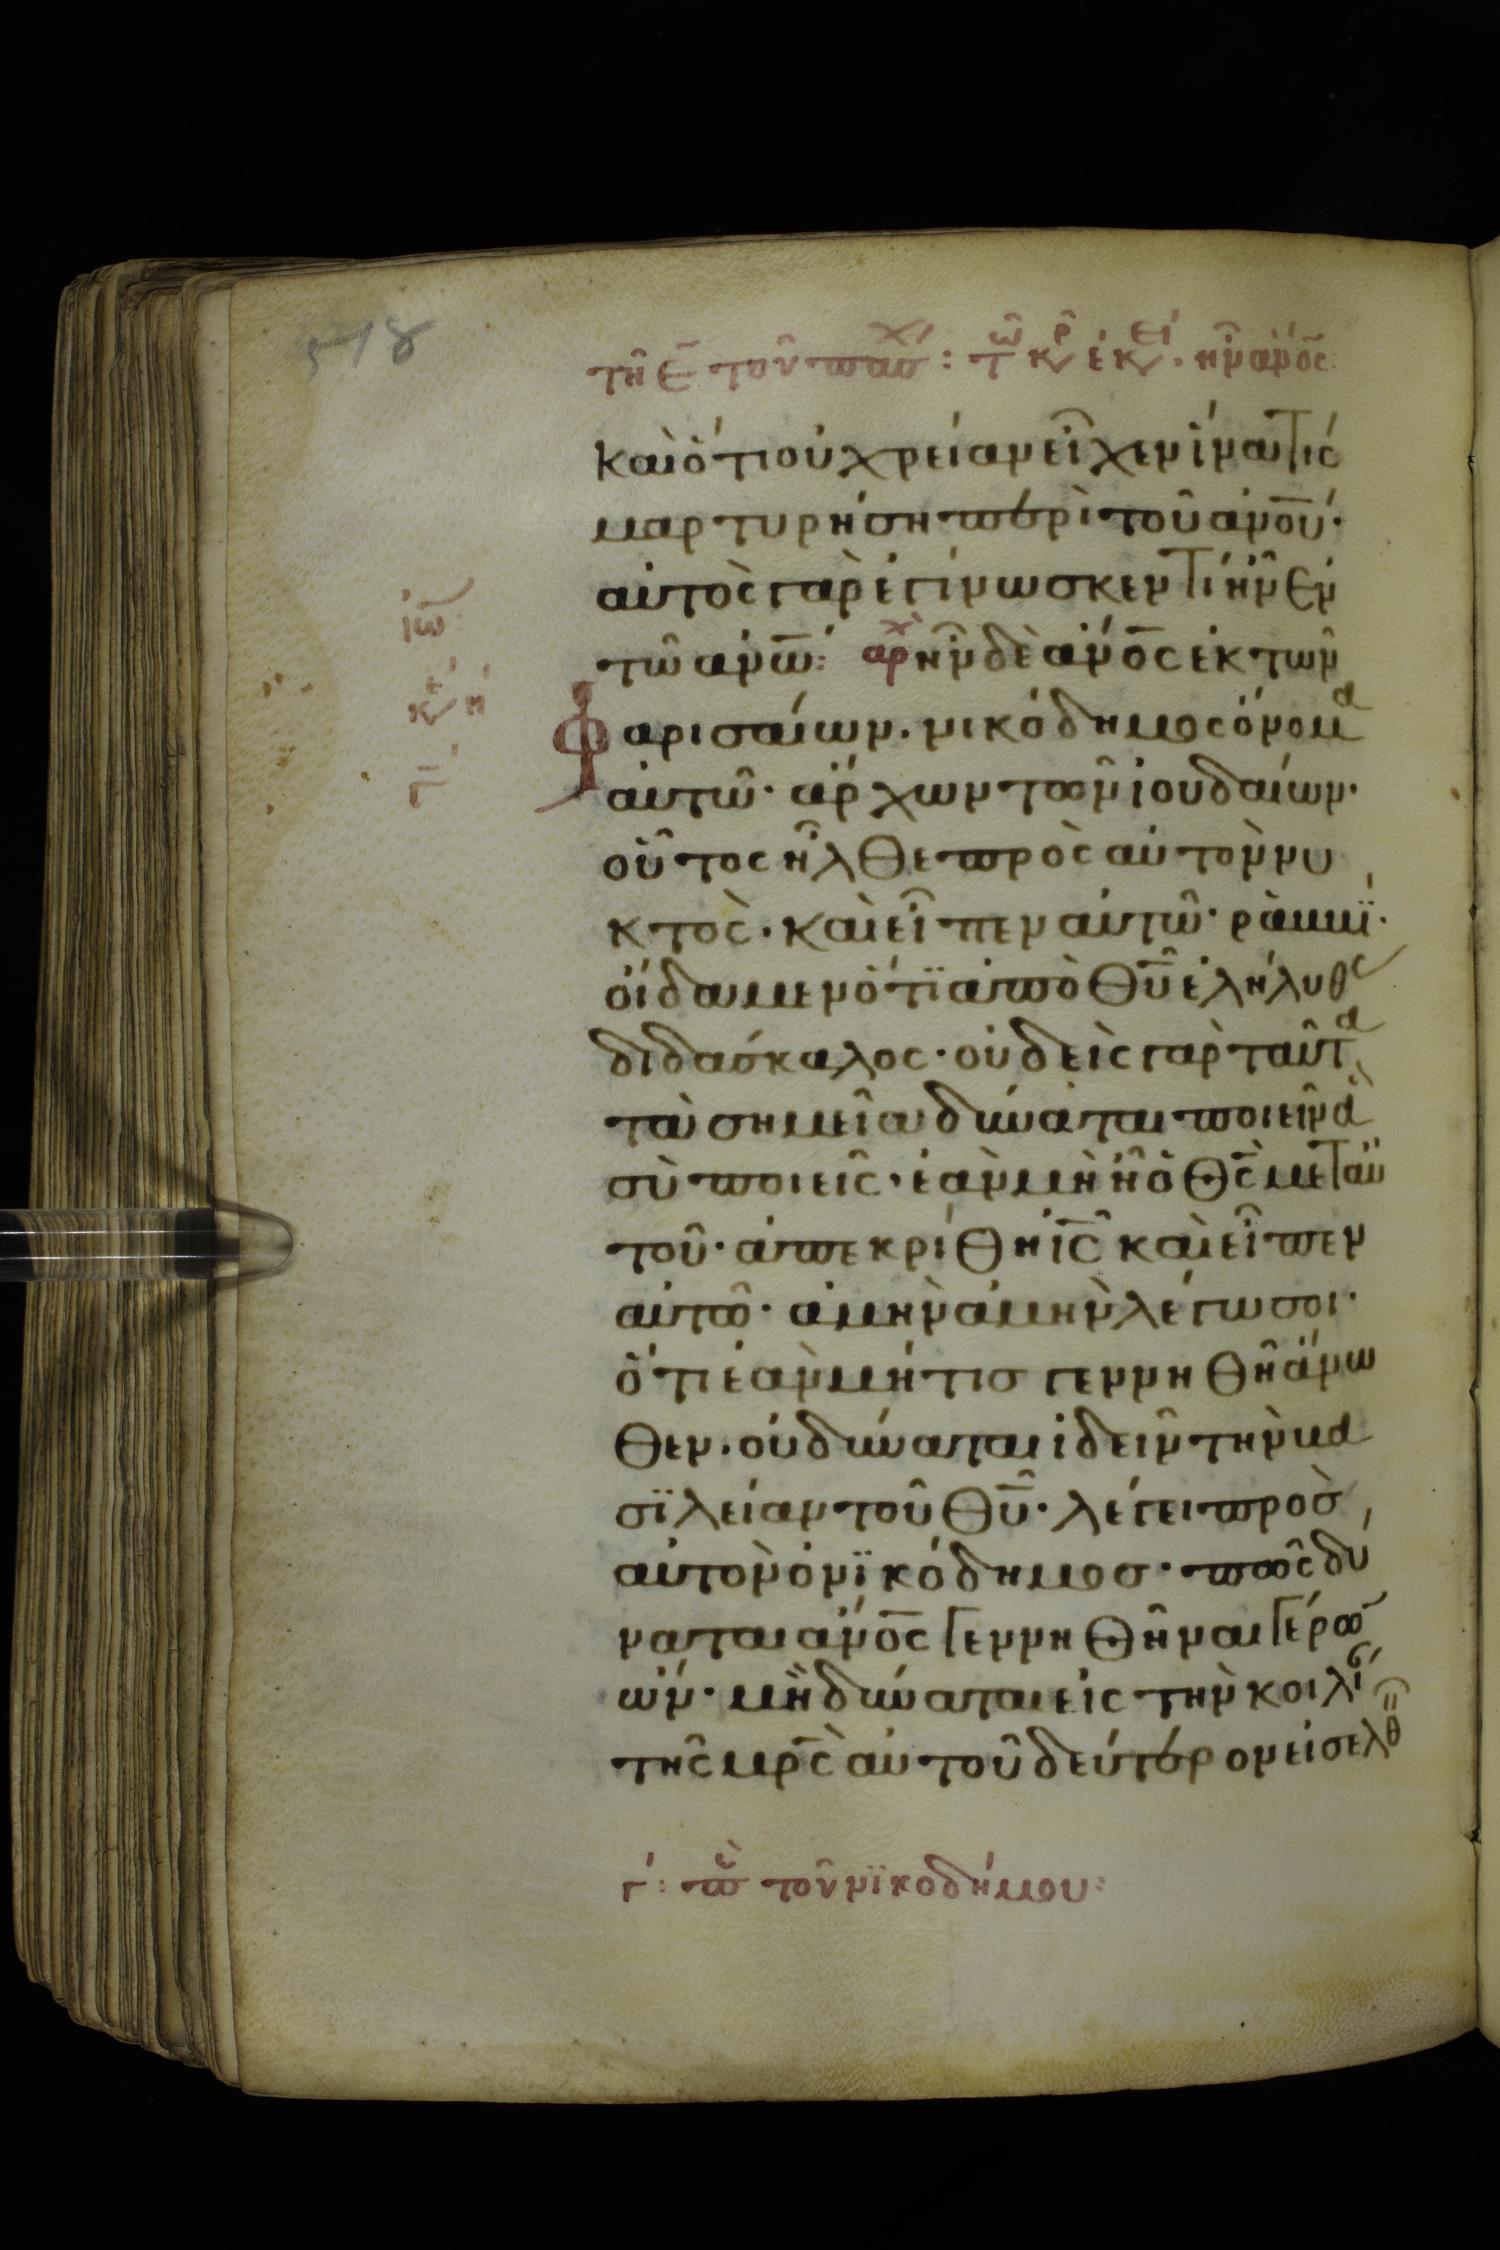 518
τῆ ε̄ τοῦ πασχ: τῶ κρ ἐκεί. ἦν ἄνο̄ς
καὶ ὅτι οὐ χρείαν εἶχεν ἵνα τίς
μαρτυρήση περὶ τοῦ ἀνο̄υ·
αὐτὸς γὰρ ἐγίνωσκεν τί ἦν ἐν
τῶ ἀνω̄: αρχ ἦν δὲ ἄνο̄ς ἐκ τῶν
ιω̄
Φαρισαίων. νικόδημος ὄνομα
κε η
αὐτῶ· ἄρχων τῶν ἰουδαίων·
γ
οὗτος ἦλθε πρὸς αὐτὸν νυ
κτὸς. καὶ εἶπεν αὐτῶ· ῥαββϊ·
οἴδαμεν ὅτϊ ἀπὸ θῡ ἐλήλυθς
διδάσκαλος· οὐδεὶς γὰρ ταῦτα
τὰ σημεῖα δύναται ποιεῖν ἃ
σὺ ποιεῖς· ἐὰν μὴ ἦ ὁ θς̄ μετ αὐ
τοῦ· ἀπεκρίθη ἰς̄ καὶ εἶπεν
αὐτῶ· ἀμὴν ἀμὴν λέγω σοι·
ὅτι ἐὰν μή τις γεννηθῆ ἄνω
θεν. οὐ δύναται ἰδεῖν τὴν βα
σϊλείαν τοῦ θῡ· λέγει πρὸς
αὐτὸν ὁ νϊκόδημος· πῶς δύ
ναται ἄνο̄ς γεννηθῆναι γέρω
ὤν· μὴ δύναται εἰς τὴν κοιλί
τῆς μρ̄ς αὐτοῦ δεύτερον εἰσελθ
γ: πε τοῦ νϊκοδήμου: